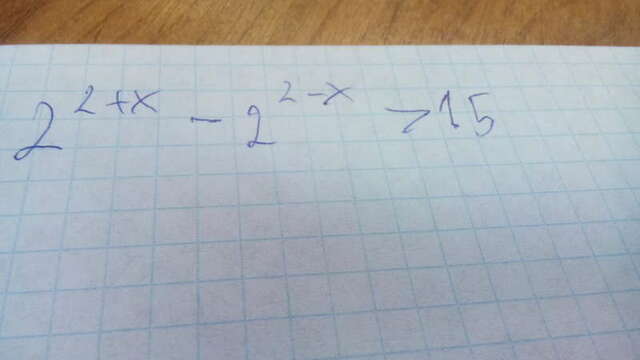 2^{2+x} - 2^{2-x} > 15